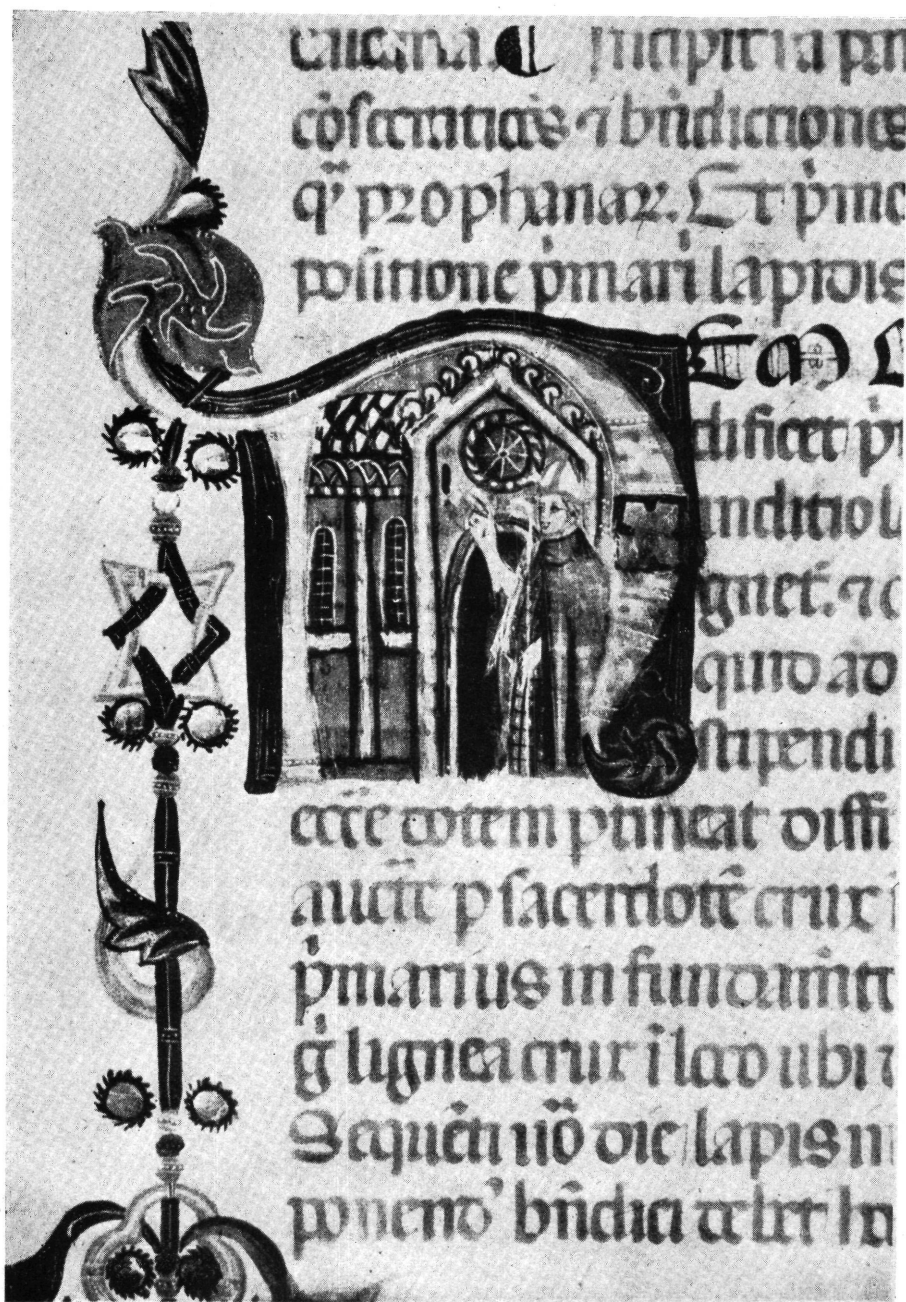 Incipit ia par
cōsecrationes ⁊ bn̄dictiones
qͣ prophanaꝝ. Et pͥnc
positione pͥmarii lapidis
EMO
difficet pͥ
gnet. ⁊ c
quid ad
stipendi
ecce dotem ptineat diffi
auctē p sacerdotē crux
pͥmarius in fundamt
gͦ lignea crux ī loco ubi
Sequēti uō die lapis in
ponendꝰ bn̄dici debet h